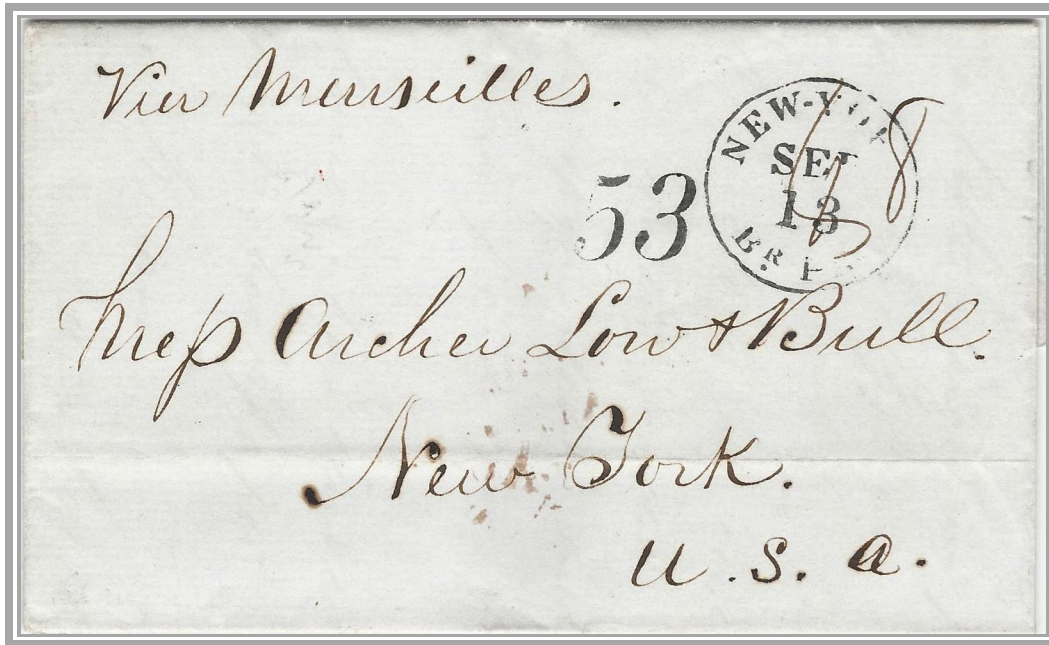 Via Marseilles.
NEW-YO
SEP
13
BR
53
1/8
Mess Archer Low & Bull.
New York.
U. S. A.